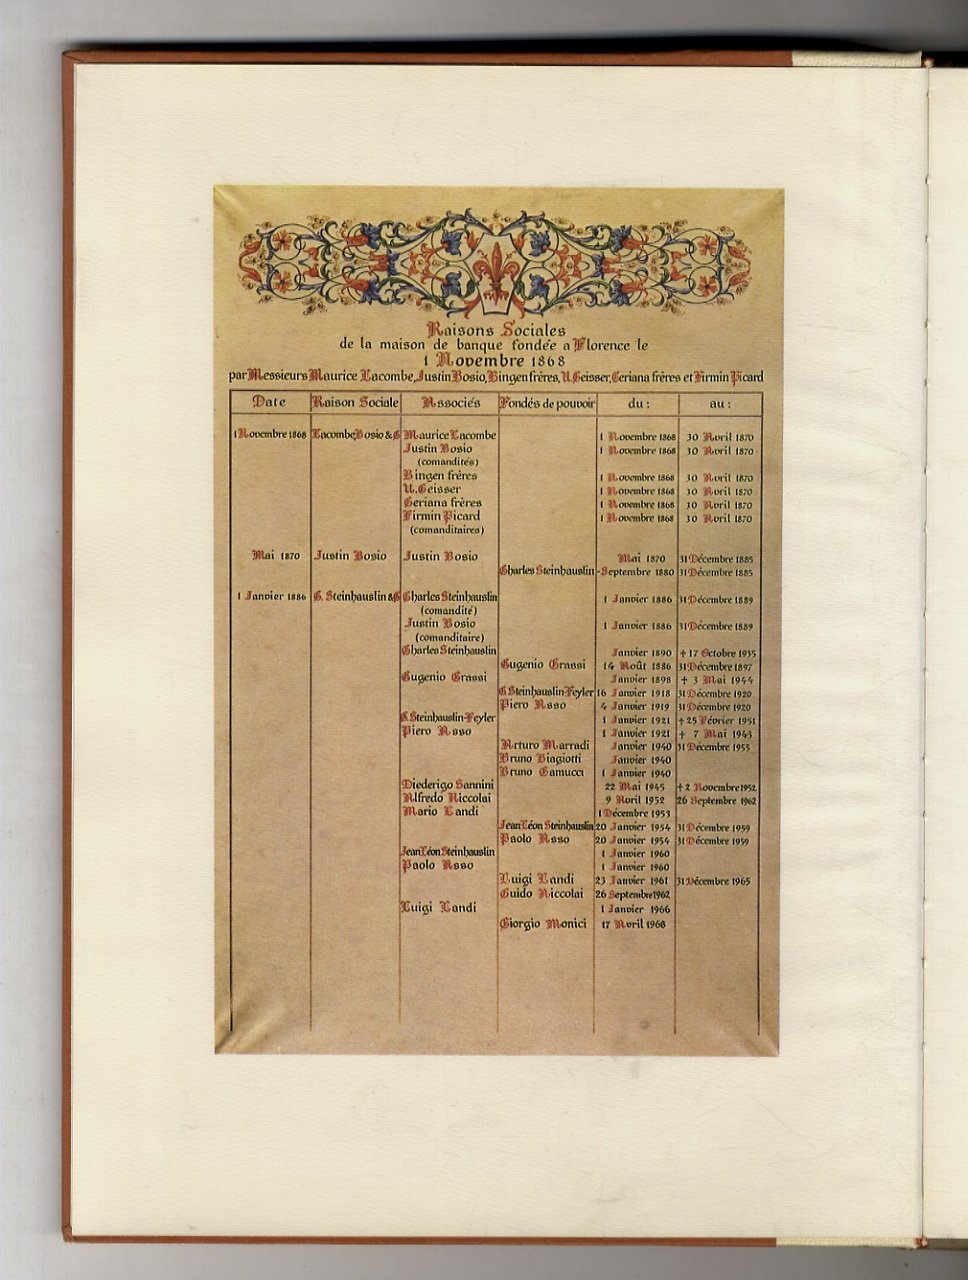 Raisons Sociales
de la maison de banque fondée a Florence le
1 Novembre 1868
par Messieurs Maurice Lacombe, Justin Bosio, Bingen frères, U. Geisser, Ceriana frères et Firmin Picard
Date Raison Sociale Associés Fondés de pouvoir du: au:
1 Novembre 1868 Lacombe, Bosio & C Maurice Lacombe 1 Novembre 1868 30 Avril 1870
Justin Bosio 1 Novembre 1868 30 Avril 1870
(comandités)
Bingen frères 1 Novembre 1868 30 Avril 1870
U. Geisser 1 Novembre 1868 30 Avril 1870
Ceriana frères 1 Novembre 1868 30 Avril 1870
Firmin Picard 1 Novembre 1868 30 Avril 1870
(comanditaires)
Mai 1870 Justin Bosio Justin Bosio Mai 1870 31 Décembre 1885
Charles Steinhauslin - Septembre 1880 31 Décembre 1885
1 Janvier 1886 C. Steinhauslin & C Charles Steinhauslin 1 Janvier 1886 31 Décembre 1889
(comandité)
Justin Bosio 1 Janvier 1886 31 Décembre 1889
(comanditaire)
Charles Steinhauslin Janvier 1890 † 17 Octobre 1935
Eugenio Grassi 14 Août 1886 31 Décembre 1897
Eugenio Grassi Janvier 1898 † 3 Mai 1944
C. Steinhauslin-Feyler 16 Janvier 1918 31 Décembre 1920
Piero Asso 4 Janvier 1919 31 Décembre 1920
C. Steinhauslin-Feyler 1 Janvier 1921 † 25 Février 1951
Piero Asso 1 Janvier 1921 † 7 Mai 1943
Arturo Marradi Janvier 1940 31 Décembre 1955
Bruno Biagiotti Janvier 1940
Bruno Camucci 1 Janvier 1940
Diederigo Sannini 22 Mai 1945 † 2 Novembre 1952
Alfredo Niccolai 9 Avril 1952 26 Septembre 1962
Mario Landi 1 Décembre 1953
Jean Léon Steinhauslin 20 Janvier 1954 31 Décembre 1959
Paolo Asso 20 Janvier 1954 31 Décembre 1959
Jean Léon Steinhauslin 1 Janvier 1960
Paolo Asso 1 Janvier 1960
Luigi Landi 23 Janvier 1961 31 Décembre 1965
Guido Niccolai 26 Septembre 1962
Luigi Landi 1 Janvier 1966
Giorgio Monici 17 Avril 1968